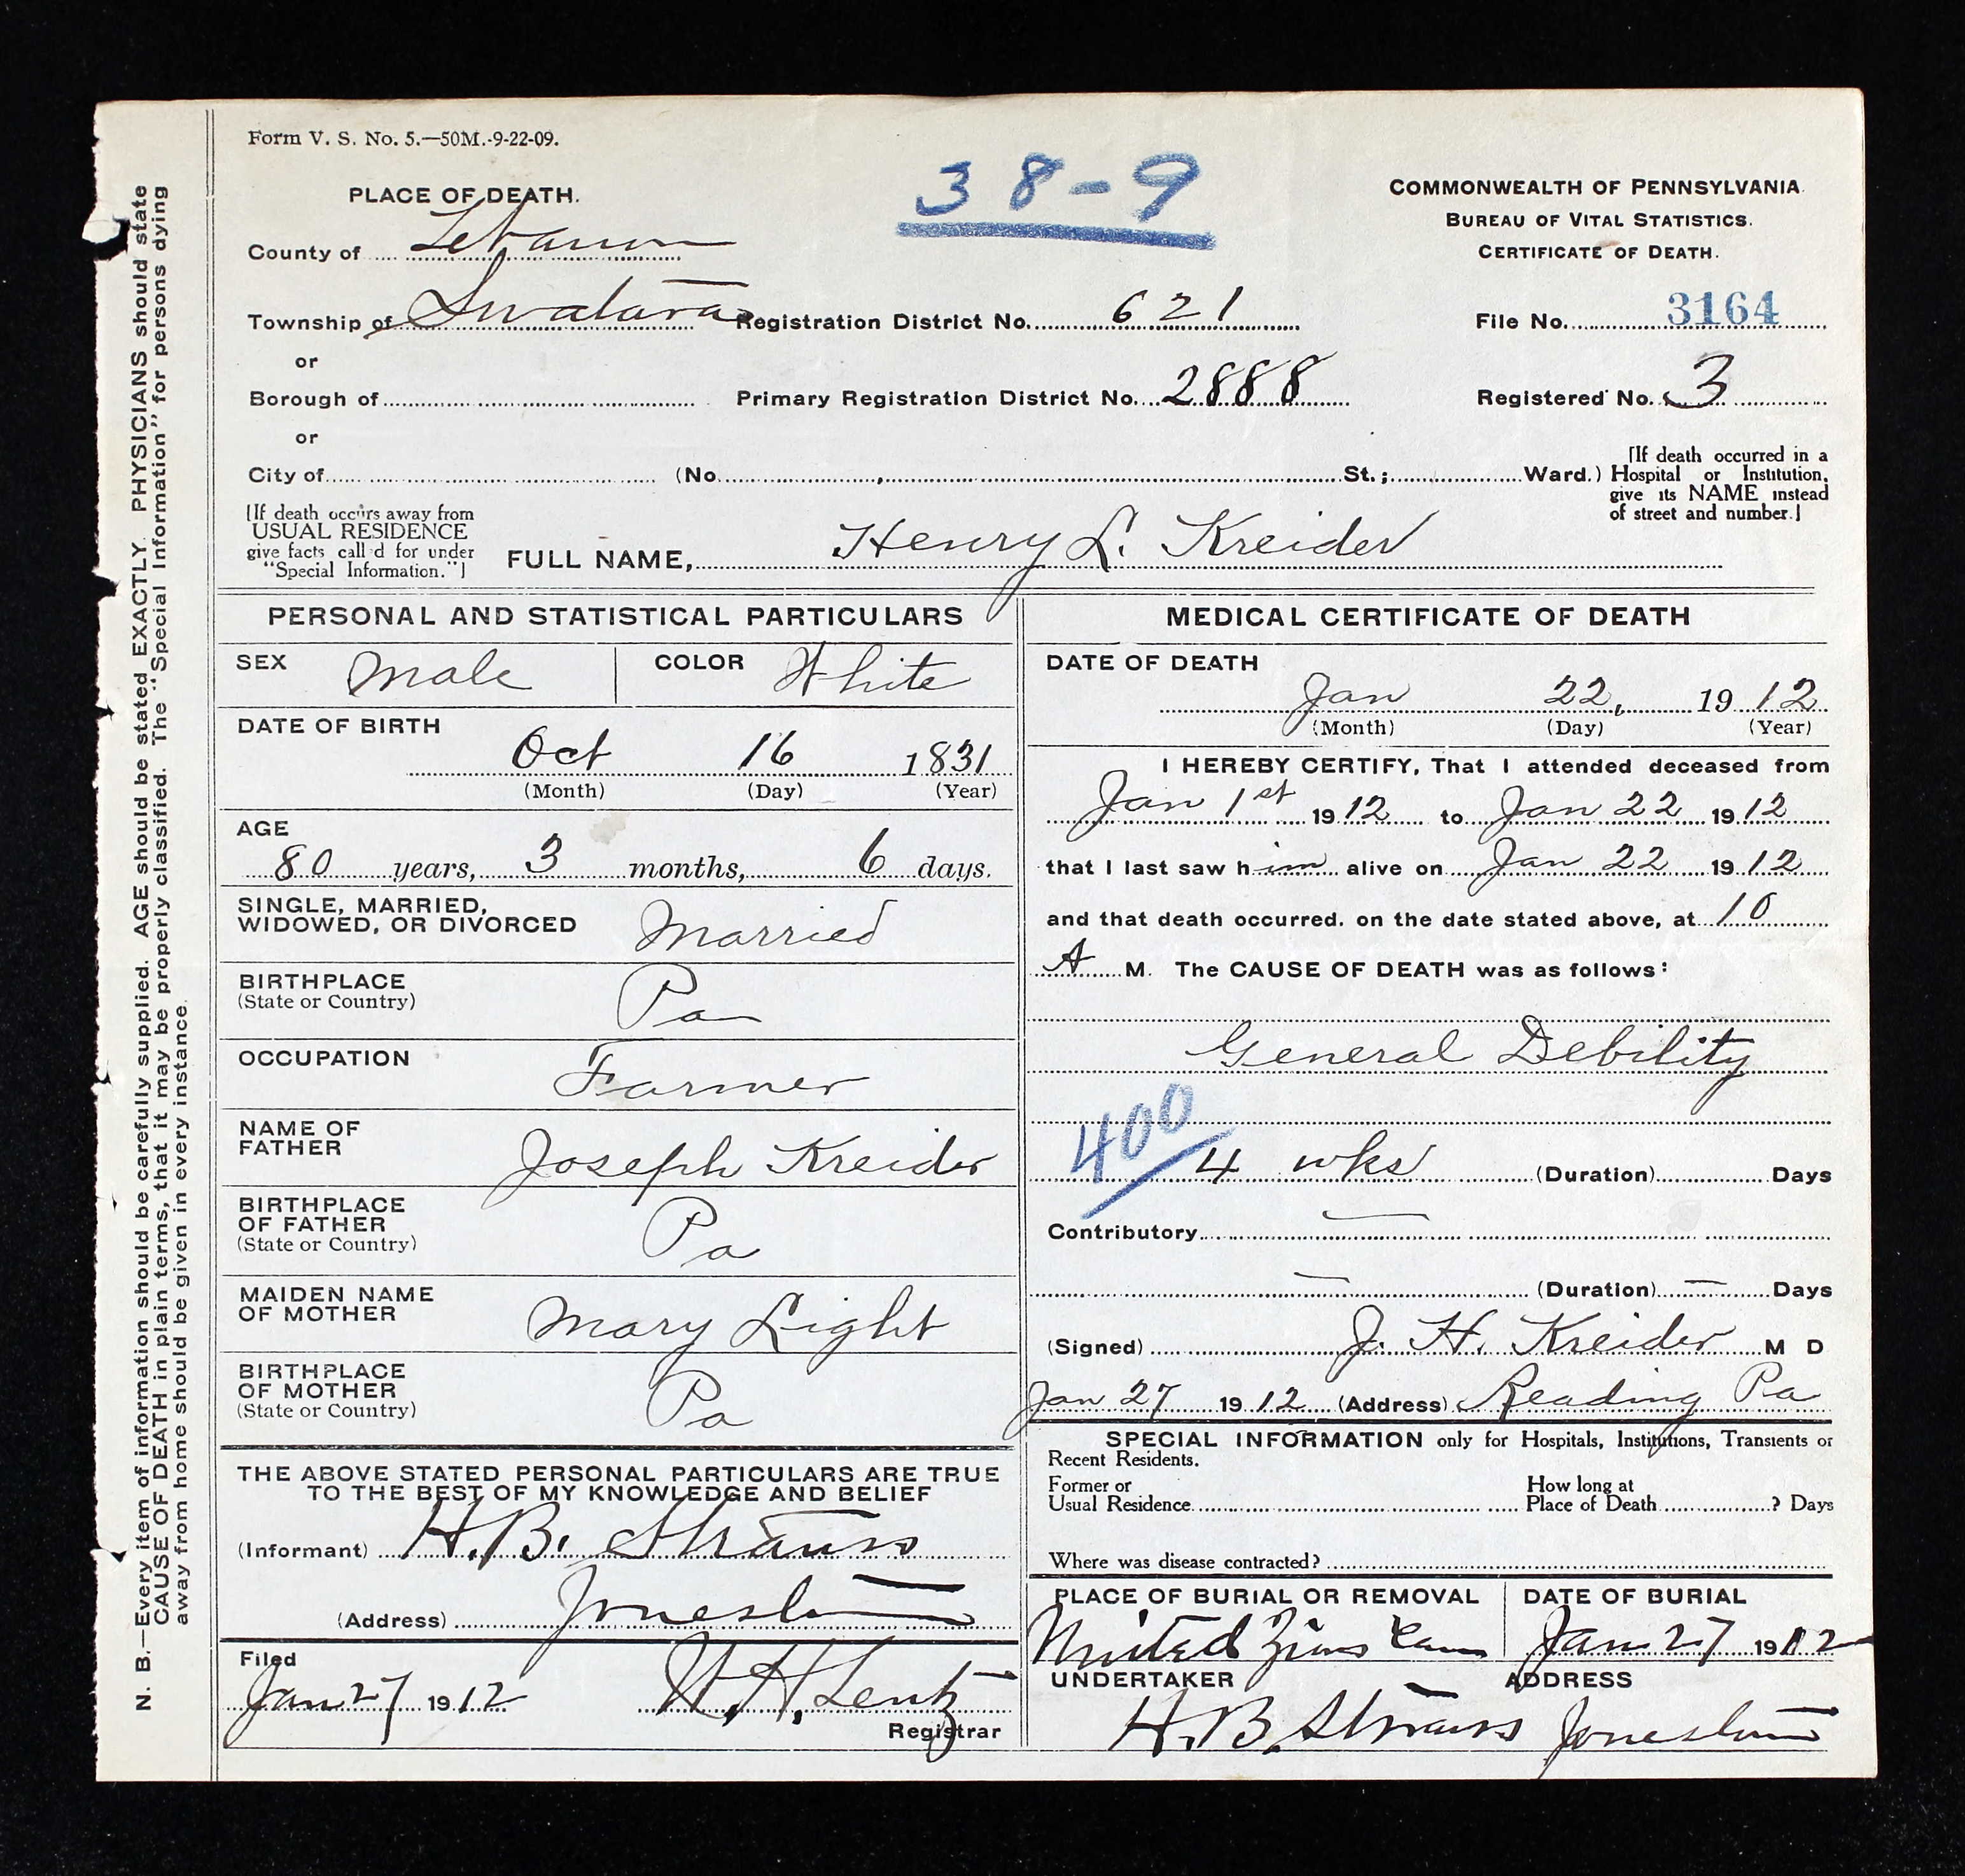 Form V. S. No. 5.—50M.-9-22-09.
38-9
PLACE OF DEATH.
County of Lebanon
Township of Swatara Registration District No. 621
or
Borough of Primary Registration District No. 2888
or
City of (No. , St.; Ward.)
COMMONWEALTH OF PENNSYLVANIA.
BUREAU OF VITAL STATISTICS.
CERTIFICATE OF DEATH.
File No. 3164
Registered No. 3
[If death occurred in a
Hospital or Institution,
give its NAME instead
of street and number.]
[If death occurs away from
USUAL RESIDENCE
give facts call d for under
"Special Information."]
FULL NAME, Henry L. Kreider
PERSONAL AND STATISTICAL PARTICULARS
SEX Male COLOR White
DATE OF BIRTH
Oct 16 1831
(Month) (Day) (Year)
AGE
80 years, 3 months, 6 days.
SINGLE, MARRIED,
WIDOWED, OR DIVORCED Married
BIRTHPLACE
(State or Country) Pa
OCCUPATION
Farmer
NAME OF
FATHER Joseph Kreider
BIRTHPLACE
OF FATHER
(State or Country) Pa
MAIDEN NAME
OF MOTHER Mary Light
BIRTHPLACE
OF MOTHER
(State or Country) Pa
THE ABOVE STATED PERSONAL PARTICULARS ARE TRUE
TO THE BEST OF MY KNOWLEDGE AND BELIEF
(Informant) H. B. Strauss
(Address) Jonestown
Filed
Jan 27 1912 W. H. Lentz
Registrar
MEDICAL CERTIFICATE OF DEATH
DATE OF DEATH
Jan 22, 1912
(Month) (Day) (Year)
I HEREBY CERTIFY, That I attended deceased from
Jan 1st 1912 to Jan 22 1912
that I last saw him alive on Jan 22 1912
and that death occurred, on the date stated above, at 10
A M. The CAUSE OF DEATH was as follows:
General Debility
400
4 wks (Duration) Days
Contributory —
— (Duration) — Days
(Signed) J. H. Kreider M D
Jan 27 1912 (Address) Reading Pa
SPECIAL INFORMATION only for Hospitals, Institutions, Transients or
Recent Residents.
Former or
Usual Residence
How long at
Place of Death ? Days
Where was disease contracted?
PLACE OF BURIAL OR REMOVAL
United Zions Cem
DATE OF BURIAL
Jan 27 1912
UNDERTAKER
H. B. Strauss
ADDRESS
Jonestown
N. B.—Every item of information should be carefully supplied. AGE should be stated EXACTLY. PHYSICIANS should state
CAUSE OF DEATH in plain terms, that it may be properly classified. The "Special Information" for persons dying
away from home should be given in every instance.